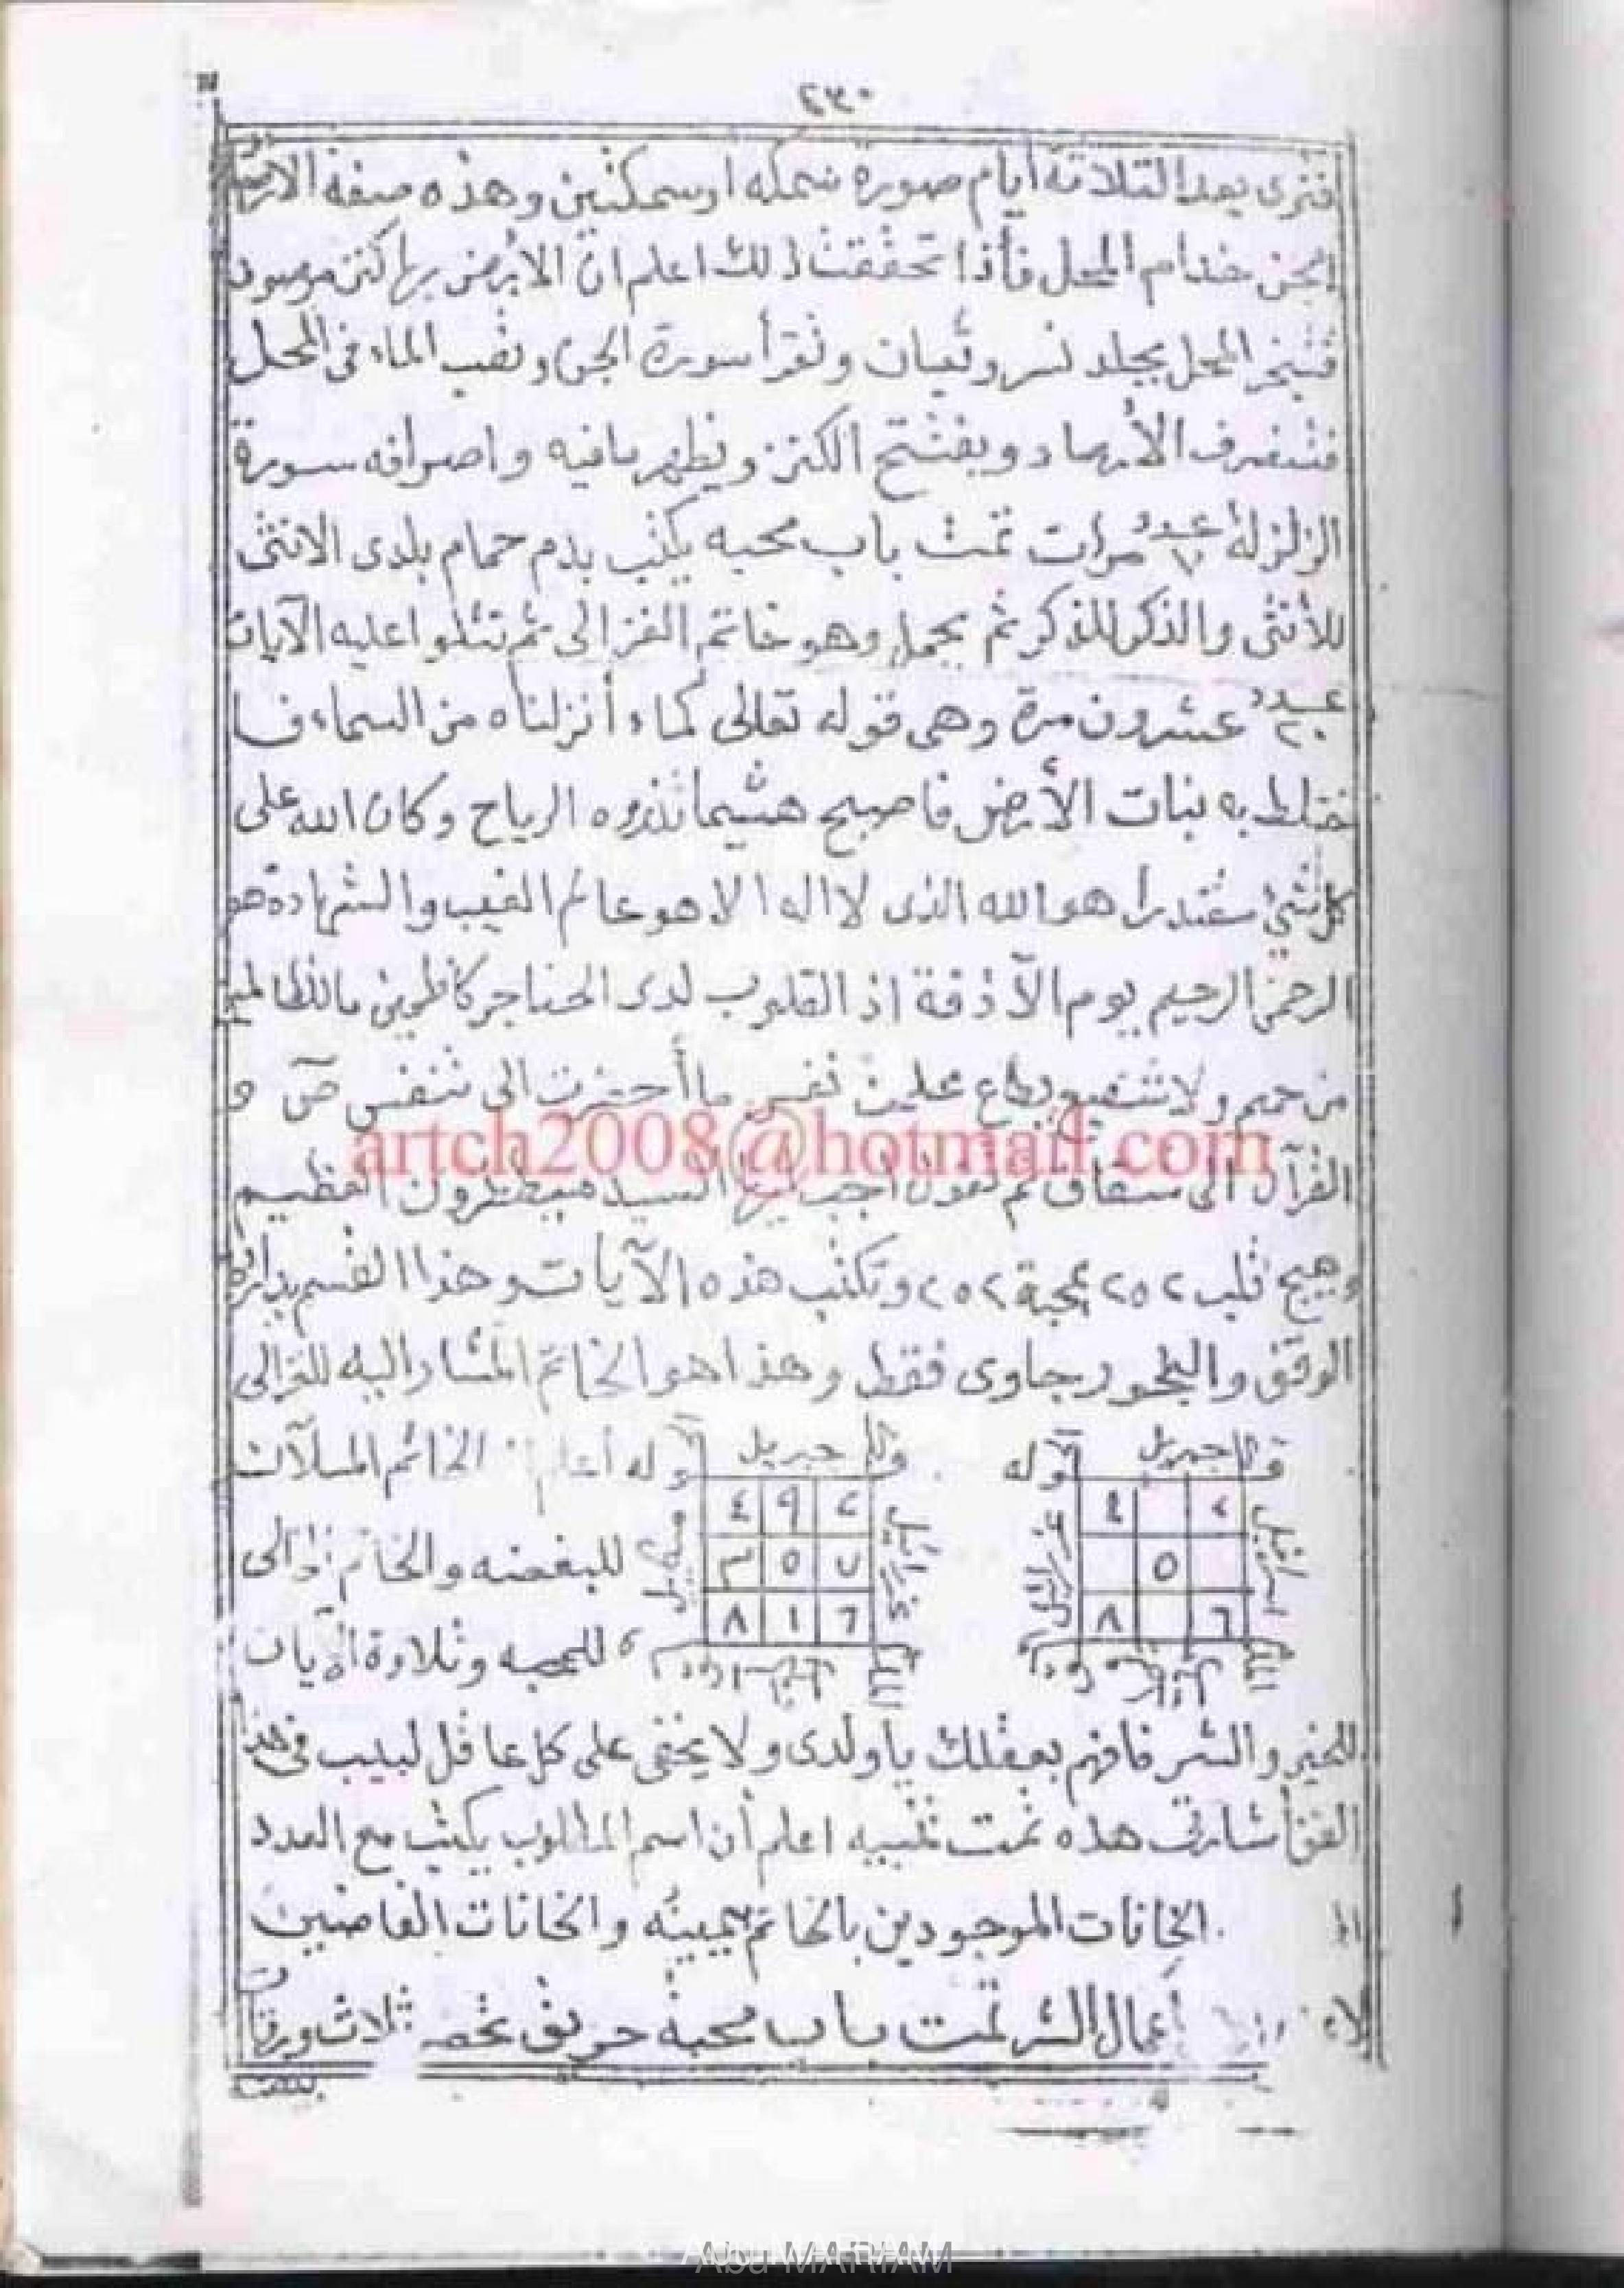 ٢٣٠
فترى بعد الثلاثة أيام صورة سمكه او سمكتين وهذه صفة
الجن خدام المحل فأذا تحققت ذلك اعلم ان الارض بها كنز مرصود
فتبخر المحل بجلد نسر وثعبان وتقرأ سورة الجن وتصب الماء فى المحل
فتنصرف الأرصاد ويفتتح الكنز ويظهر مافيه واصرافه سورة
الزلزلة عدد ٧ مرات تمت باب محبه يكتب بدم حمام بلدى الانثى
للأنثى والذكر للذكر ثم يحمل وهو خاتم الغزالى ثم تتلوا عليه الآيات
عدد ٢٠ عشرون مرة وهى قوله تعالى كماء أنزلناه من السماء فا
ختلط به نبات الأرض فاصبح هشيما تذروه الرياح وكان الله على
كل شئ مقتدرا هو الله الذى لا اله الا هو عالم الغيب والشهادة هو
الرحمن الرحيم يوم الآزفة اذ القلوب لدى الحناجر كاظمين ماللظالمين
من حميم ولا شفيع يطاع علمت نفس ما أحضرت الى تنفس ص و
artch2008@hotmail.com
القرآن الى شقاق ثم تقول اجب ايها السيد العظيم
وهيج قلب ٢٥٢ بمحبة ٢٥٢ وتكتب هذه الآيات وهذا القسم بدائرة
الوفق والبخور جاوى فقط وهذا هو الخاتم المشار اليه للغزالى
قوله جبريل
٢ ٤
٥
٦ ٨
عزرائيل
قوله جبريل
٢ ٩ ٤
٧ ٥ ٣
٦ ١ ٨
وله الخاتم المسلآت
للبغضه والخاتم
للمحبه وتلاوة الآيات
للخير والشر فافهم بعقلك ياولدى ولا يخفى على كل عاقل لبيب فى هذا
الفن أشارتى هذه تمت تنبيه اعلم أن اسم المطلوب يكتب مع العدد
الخانات الموجودين بالخاتم بيمينه والخانات الفاضيين
أعمال الشر تمت باب محبة حريق تحضر ثلاث ورقات
Abu MARIAM